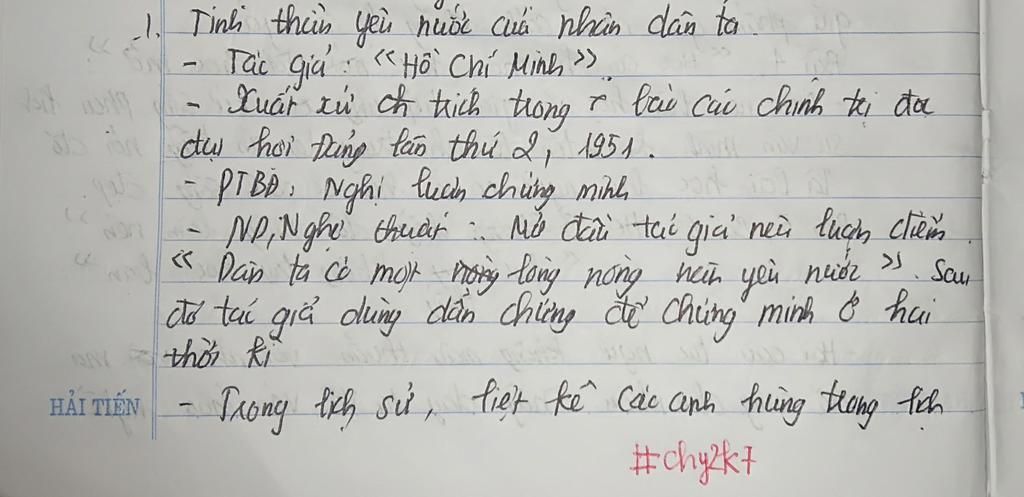 1. Tinh thần yêu nước của nhân dân ta.
- Tác giả : «Hồ Chí Minh».
- Xuất xứ trích trong bài các chính trị đọc
đại hội Đảng lần thứ 2, 1951.
- PTBĐ : Nghị luận chứng minh
- ND, Nghệ thuật : Mở đầu tác giả nêu luận điểm
« Dân ta có một lòng nồng nàn yêu nước ». Sau
đó tác giả dùng dẫn chứng để chứng minh ở hai
thời kì
HẢI TIẾN
- Trong lịch sử, liệt kê các anh hùng trong lịch
#chy2k7